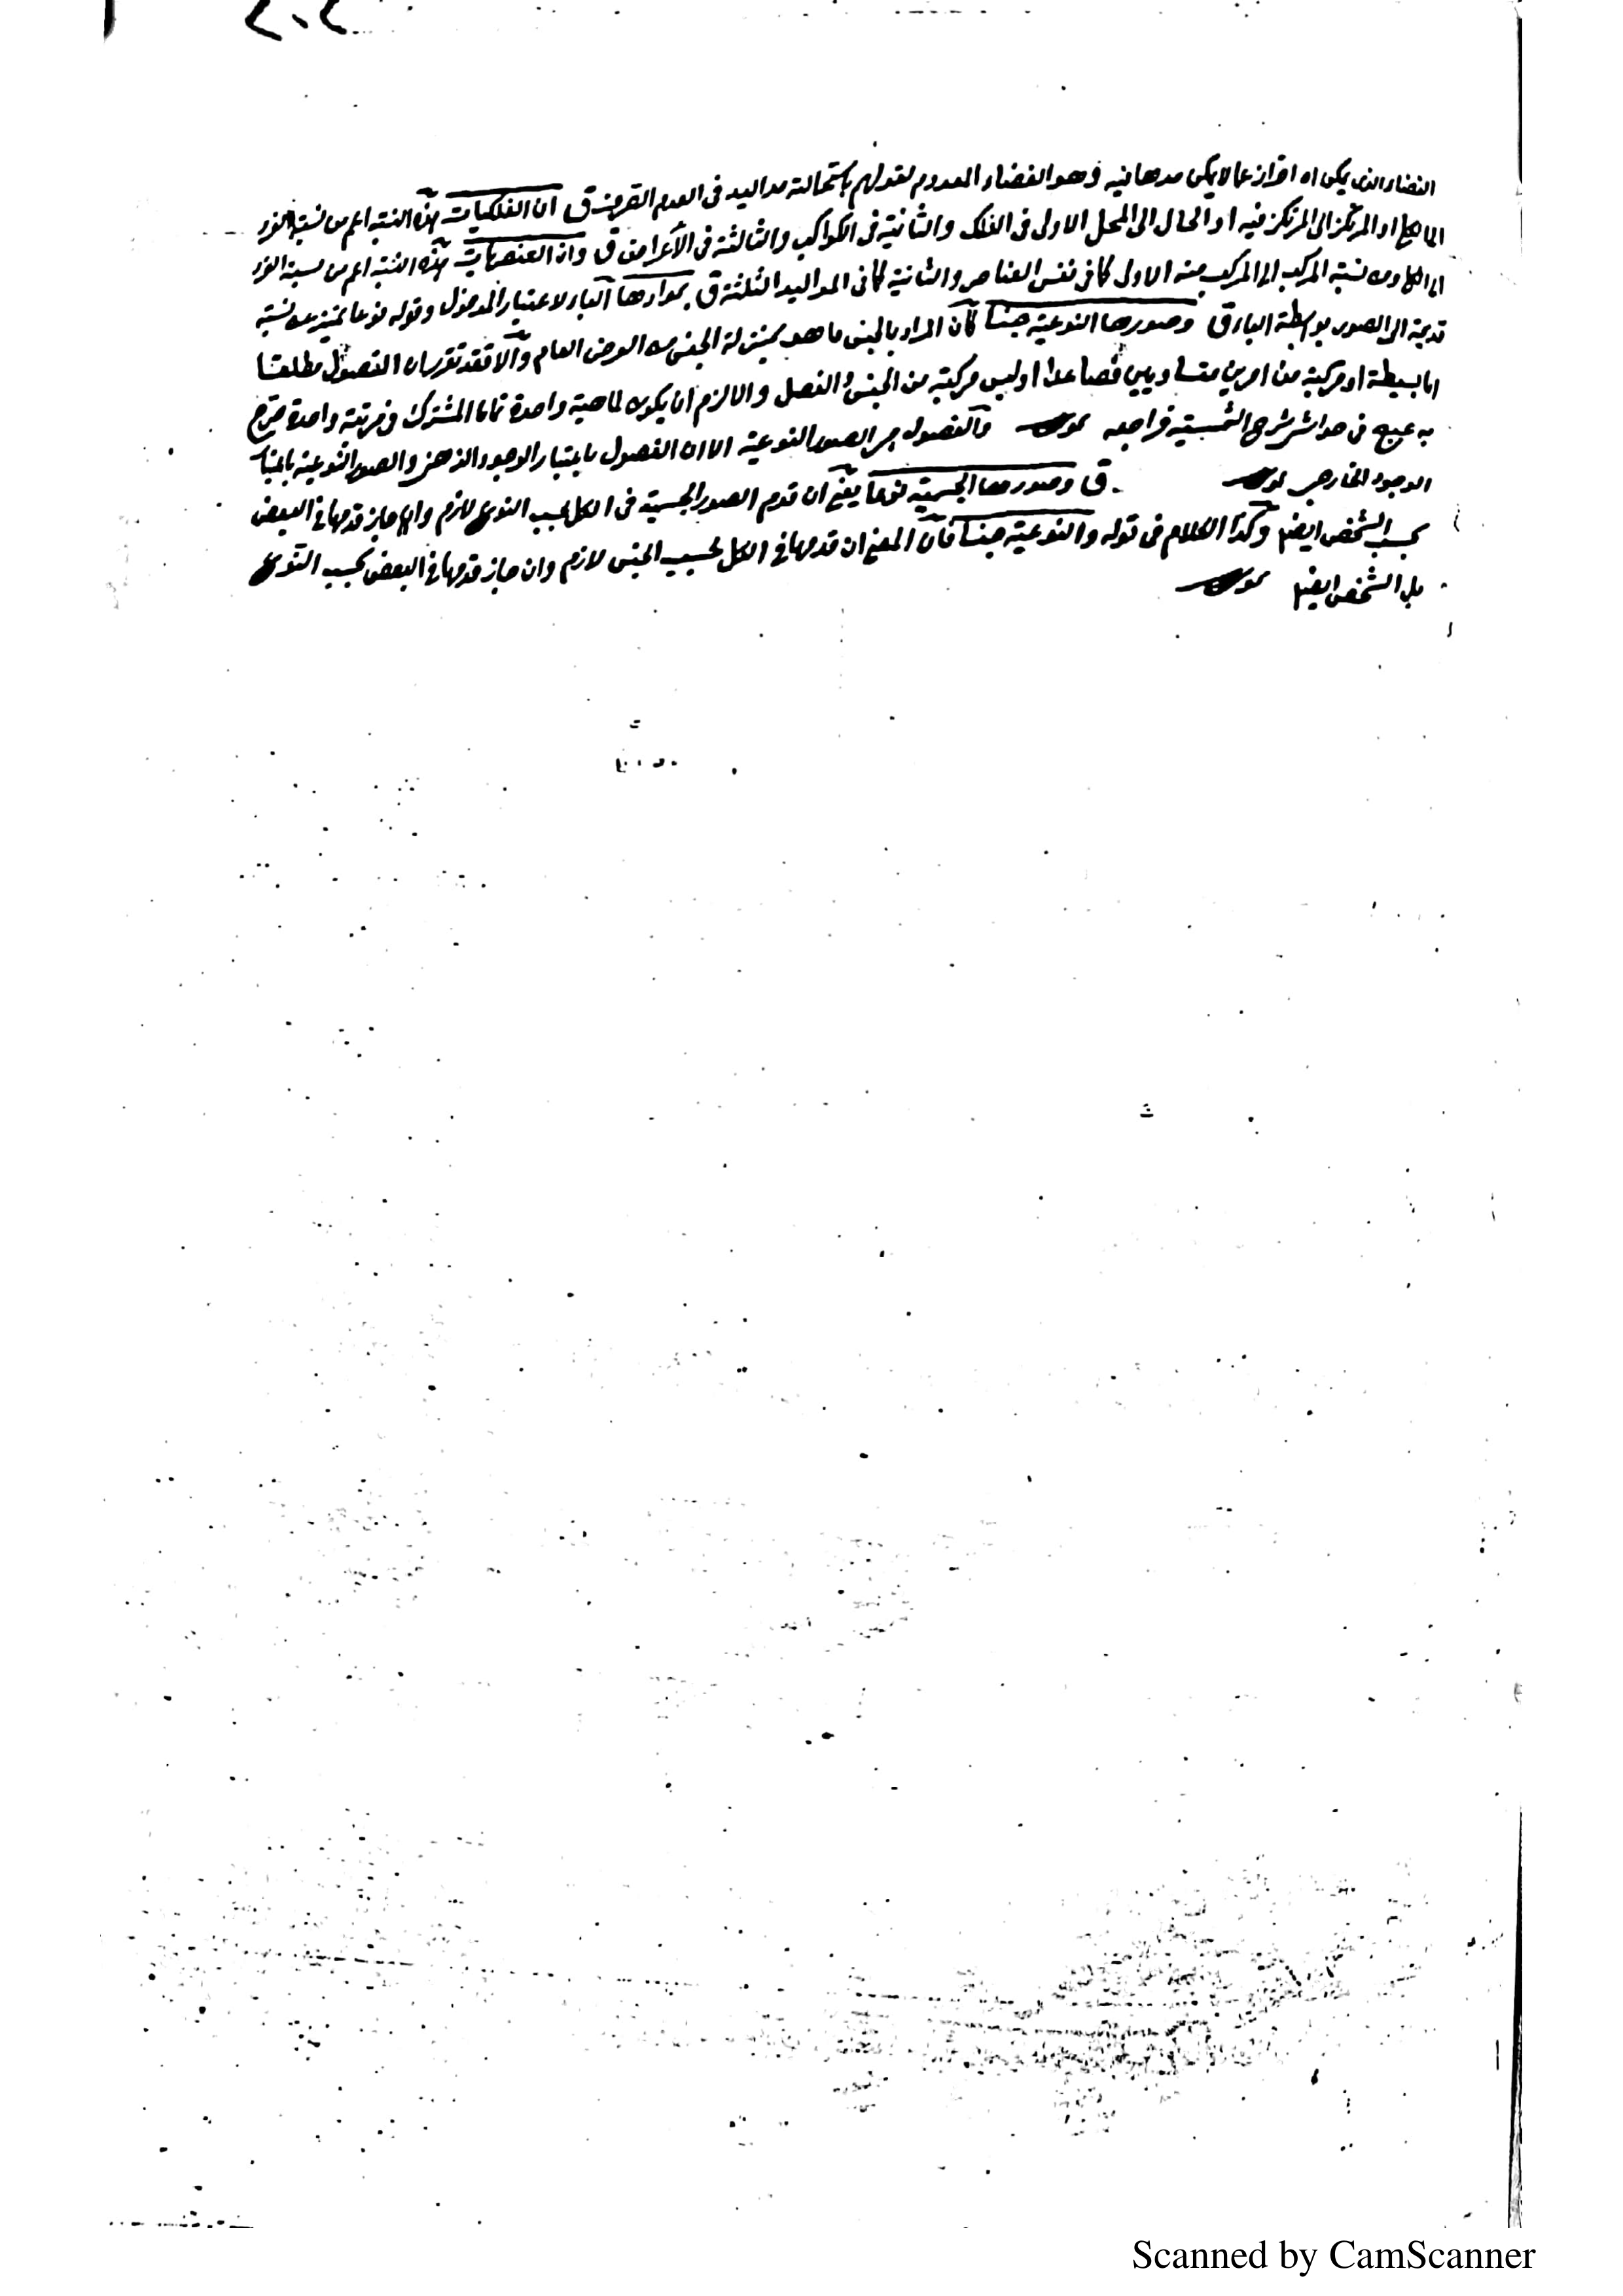 ٢٠٢
الفضاء الذى يمكن اه احتراز عما لا يمكن مدها فيه وهو الفضاء المعدوم لقولهم باستحالة مد اليد فى العدم الصرف ق ان الفلكيات هذه النسبة اعم من نسبة الفرد
الى الكلى او المرتكز الى المرتكز فيه او الحال الى المحل الاولى فى الفلك والثانية فى الكواكب والثالثة فى الاعراض ق وان العنصريات هذه النسبة اعم من نسبة الفرد
الى الكلى ومن نسبة المركب الى المركب منه الاولى كما فى نفس العناصر والثانية كما فى المواليد الثلثة ق بموادها الباء لاعتبار المدخول وقوله نوعا تمييز عن نسبة
قديمة الى الصور بواسطة الباء ق وصورها النوعية جنسا كان المراد بالجنس ما هو بمنزلة الجنس من العرض العام والا فقد تقرر ان الفصول مطلقا
اما بسيطة او مركبة من امرين متساويين فصاعدا وليس مركبة من الجنس والفصل والا لزم ان يكون لماهية واحدة تماما المشترك فى مرتبة واحدة صرح
به عبح فى حواشى شرح الشمسية فراجعه والفصول هى الصور النوعية الا ان الفصول باعتبار الوجود الذهنى والصور النوعية باعتبار
الوجود الخارجى ق وصورها الجسمية نوعا يعنى ان قدم الصور الجسمية فى الكل بحسب النوع لازم وان جاز قدمها فى البعض
بحسب الشخص ايضا وكذا الكلام فى قوله والنوعية جنسا فان المعنى ان قدمها فى الكل بحسب الجنس لازم وان جاز قدمها فى البعض بحسب النوع
بل الشخص ايضا
Scanned by CamScanner